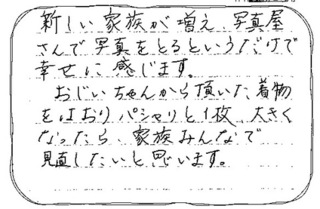 新しい家族が増え、写真屋
さんで写真をとるというだけで
幸せに感じます。
おじいちゃんから頂いた着物
をはおりパシャリと1枚、大きく
なったら、家族みんなで
見直したいと思います。